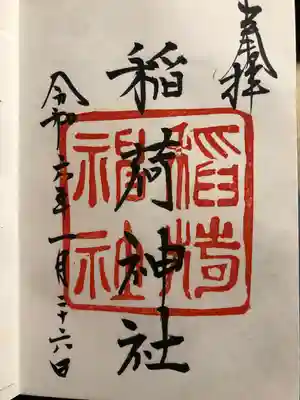 奉拝
稲荷神社
稲荷
神社
令和六年一月二十六日